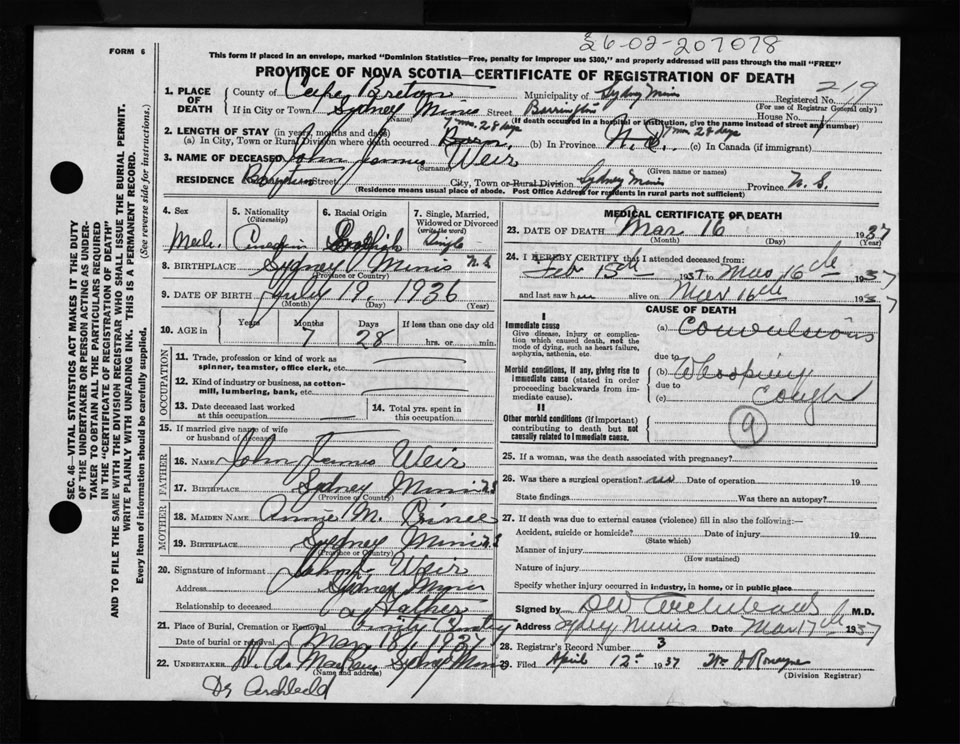 26-02-207078
FORM 6
This form if placed in an envelope, marked "Dominion Statistics—Free, penalty for improper use $300," and properly addressed will pass through the mail "FREE"
PROVINCE OF NOVA SCOTIA—CERTIFICATE OF REGISTRATION OF DEATH
SEC. 46—VITAL STATISTICS ACT MAKES IT THE DUTY
OF THE UNDERTAKER OR PERSON ACTING AS UNDER-
TAKER TO OBTAIN ALL THE PARTICULARS REQUIRED
IN THE "CERTIFICATE OF REGISTRATION OF DEATH"
AND TO FILE THE SAME WITH THE DIVISION REGISTRAR WHO SHALL ISSUE THE BURIAL PERMIT.
WRITE PLAINLY WITH UNFADING INK. THIS IS A PERMANENT RECORD.
Every item of information should be carefully supplied.
(See reverse side for instructions.)
1. PLACE OF DEATH County of Cape Breton Municipality of Sydney Mines Registered No. 219
(For use of Registrar General only)
If in City or Town Sydney Mines Street Barrington House No.
(Name) (If death occurred in a hospital or institution, give the name instead of street and number)
2. LENGTH OF STAY (in years, months and days) 7 mos. 28 days 7 mos 28 days
(a) In City, Town or Rural Division where death occurred Born. (b) In Province N. S. (c) In Canada (if immigrant)
3. NAME OF DECEASED John James Weir
(Surname) (Given name or names)
RESIDENCE Street City, Town or Rural Division Sydney Mines Province N. S.
(Residence means usual place of abode. Post Office Address for residents in rural parts not sufficient)
4. Sex 5. Nationality (Citizenship) 6. Racial Origin 7. Single, Married, Widowed or Divorced (write the word)
Male. Canadian Single
8. BIRTHPLACE Sydney Mines N S
(Province or Country)
9. DATE OF BIRTH July 19, 1936
(Month) (Day) (Year)
10. AGE in Years Months Days If less than one day old
7 28 hrs. or min.
OCCUPATION
11. Trade, profession or kind of work as spinner, teamster, office clerk, etc.
12. Kind of industry or business, as cotton-mill, lumbering, bank, etc.
13. Date deceased last worked at this occupation 14. Total yrs. spent in this occupation
15. If married give name of wife or husband of deceased
FATHER
16. NAME John James Weir
17. BIRTHPLACE Sydney Mines N S
(Province or Country)
MOTHER
18. MAIDEN NAME Annie M. Prince
19. BIRTHPLACE Sydney Mines N S
(Province or Country)
20. Signature of informant John J. Weir
Address Sydney Mines
Relationship to deceased Father
21. Place of Burial, Cremation or Removal Trinity Cemetery
Date of burial or removal Mar 18, 1937
22. UNDERTAKER Sydney Mines
(Name and address)
Dr Archbald
MEDICAL CERTIFICATE OF DEATH
23. DATE OF DEATH Mar 16 1937
(Month) (Day) (Year)
24. I HEREBY CERTIFY that I attended deceased from:
Feb 15th 1937 to Mar 16th 1937
and last saw h alive on Mar 16th 1937
CAUSE OF DEATH
I
Immediate cause
Give disease, injury or complication which caused death, not the mode of dying, such as heart failure, asphyxia, asthenia, etc.
(a) Convulsions
due to
Morbid conditions, if any, giving rise to immediate cause (stated in order proceeding backwards from immediate cause).
(b) Whooping
due to
(c) Cough
II
Other morbid conditions (if important) contributing to death but not causally related to immediate cause.
9
25. If a woman, was the death associated with pregnancy?
26. Was there a surgical operation? no Date of operation 19
State findings Was there an autopsy?
27. If death was due to external causes (violence) fill in also the following:—
Accident, suicide or homicide? Date of injury 19
(State which)
Manner of injury
(How sustained)
Nature of injury
Specify whether injury occurred in industry, in home, or in public place
Signed by D W Archibald M.D.
Address Sydney Mines Date Mar 17th 1937
28. Registrar's Record Number 3
29. Filed April 12th 1937
(Division Registrar)